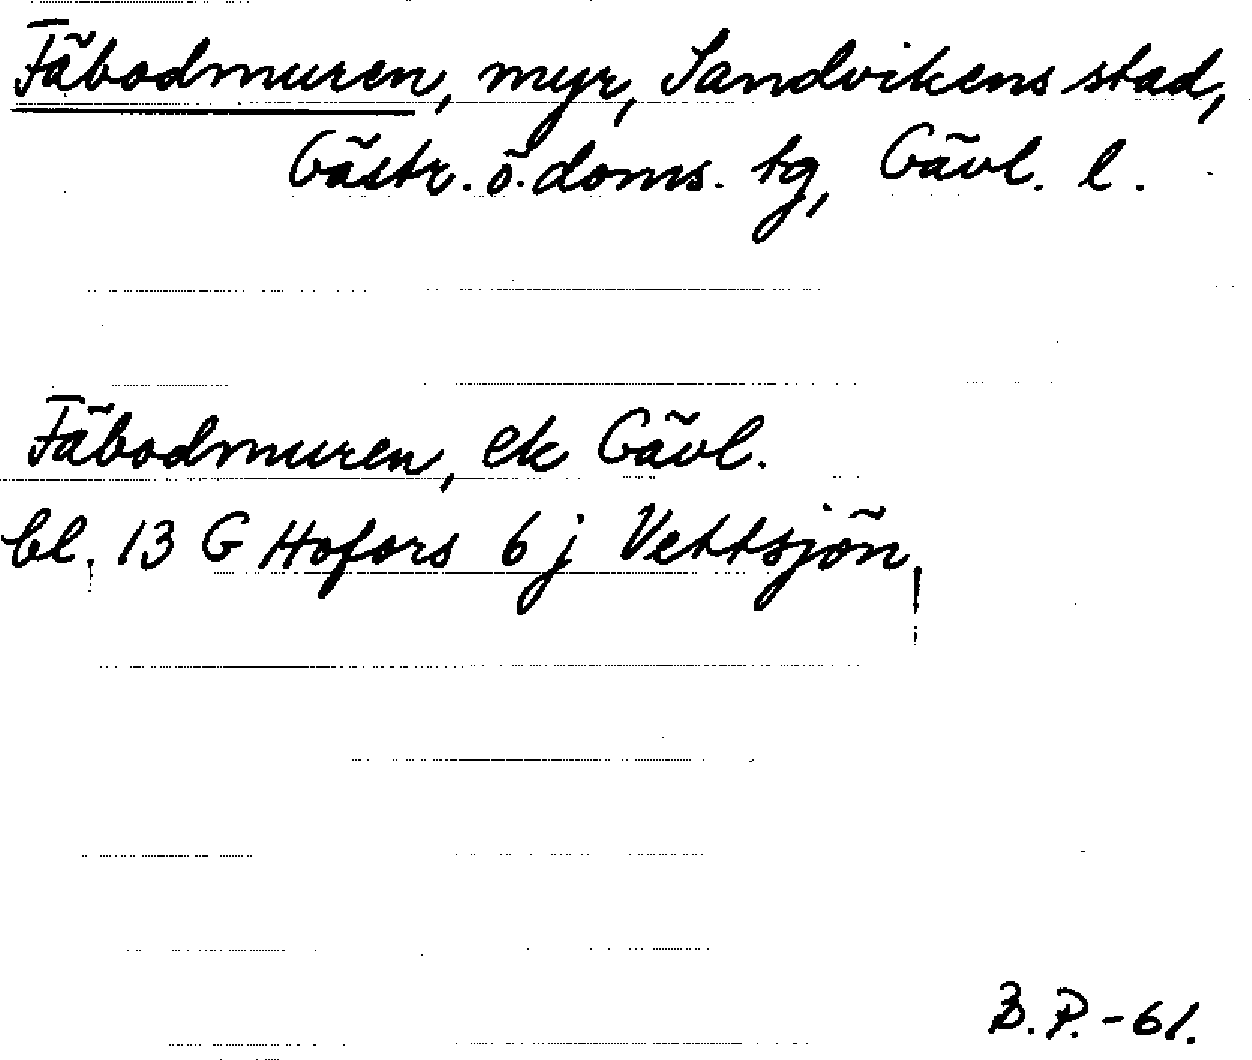 Fäbodmuren, myr, Sandvikens stad,
Gästr. ö. doms. tg, Gävl. l.
Fäbodmuren, ek Gävl.
bl. 13 G Hofors 6 j Vettsjön,
B. P. -61.